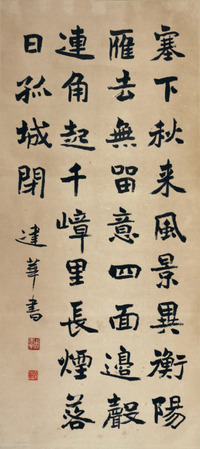 塞下秋来風景異衡陽
雁去無留意四面邊聲
連角起千嶂里長煙落
日孤城閉
建華書